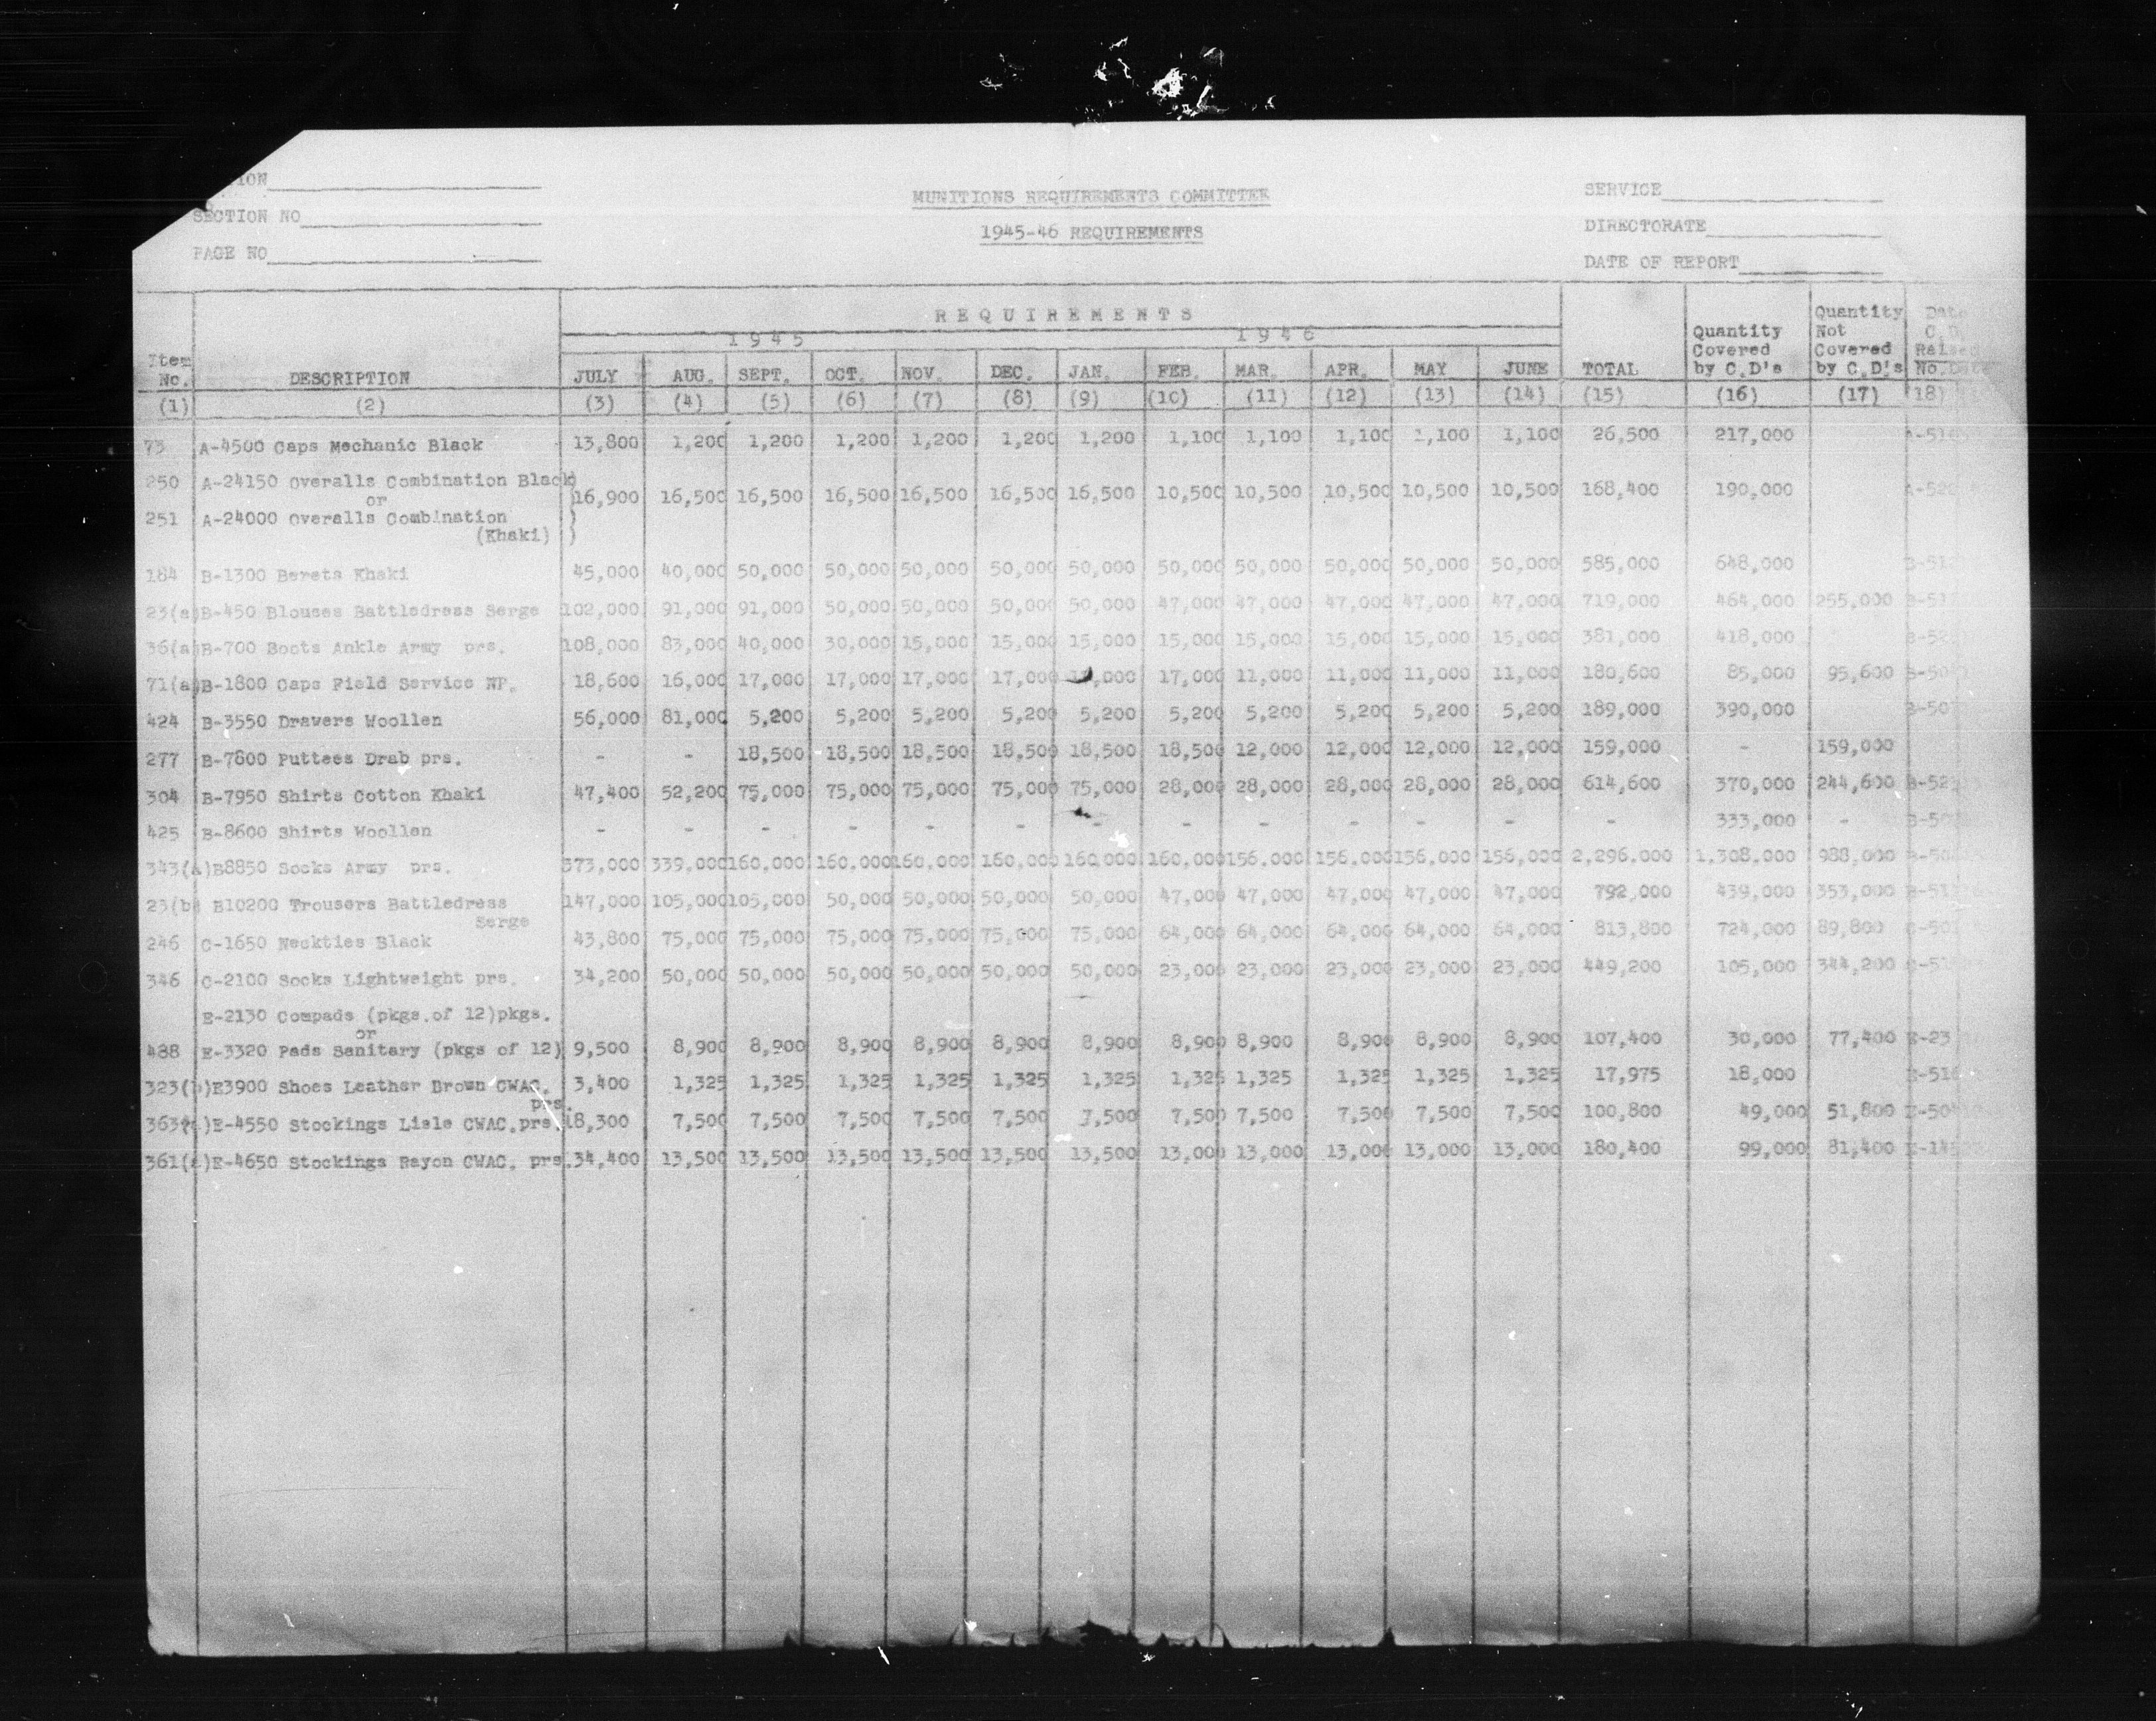 TION
MUNITIONS REQUIREMENTS COMMITTEE
SERVICE
SECTION NO
1945-46 REQUIREMENTS
DIRECTORATE
PAGE NO
DATE OF REPORT
REQUIREMENTS
1945 1946
Item No. DESCRIPTION JULY AUG. SEPT. OCT. NOV. DEC. JAN. FEB. MAR. APR. MAY JUNE TOTAL Quantity Covered by C.D's Quantity Not Covered by C.D's Date C.D. Raised No.
(1) (2) (3) (4) (5) (6) (7) (8) (9) (10) (11) (12) (13) (14) (15) (16) (17) (18)
73 A-4500 Caps Mechanic Black 13,800 1,200 1,200 1,200 1,200 1,200 1,200 1,100 1,100 1,100 1,100 1,100 26,500 217,000
250 A-24150 Overalls Combination Black)
or 16,900 16,500 16,500 16,500 16,500 16,500 16,500 10,500 10,500 10,500 10,500 10,500 168,400 190,000
251 A-24000 Overalls Combination )
(Khaki) )
184 B-1300 Berets Khaki 45,000 40,000 50,000 50,000 50,000 50,000 50,000 50,000 50,000 50,000 50,000 50,000 585,000 648,000
23(a) B-450 Blouses Battledress Serge 102,000 91,000 91,000 50,000 50,000 50,000 50,000 47,000 47,000 47,000 47,000 47,000 719,000 464,000 255,000
36(a) B-700 Boots Ankle Army prs. 108,000 83,000 40,000 30,000 15,000 15,000 15,000 15,000 15,000 15,000 15,000 15,000 381,000 418,000
71(a) B-1800 Caps Field Service NP. 18,600 16,000 17,000 17,000 17,000 17,000 ,000 17,000 11,000 11,000 11,000 11,000 180,600 85,000 95,600
424 B-3550 Drawers Woollen 56,000 81,000 5,200 5,200 5,200 5,200 5,200 5,200 5,200 5,200 5,200 5,200 189,000 390,000
277 B-7800 Puttees Drab prs. - - 18,500 18,500 18,500 18,500 18,500 18,500 12,000 12,000 12,000 12,000 159,000 - 159,000
304 B-7950 Shirts Cotton Khaki 47,400 52,200 75,000 75,000 75,000 75,000 75,000 28,000 28,000 28,000 28,000 28,000 614,600 370,000 244,600
425 B-8600 Shirts Woollen - - - - - - - - - - - - - 333,000 -
343(a) B8850 Socks Army prs. 373,000 339,000 160,000 160,000 160,000 160,000 160,000 160,000 156,000 156,000 156,000 156,000 2,296,000 1,308,000 988,000
23(b) B10200 Trousers Battledress 147,000 105,000 105,000 50,000 50,000 50,000 50,000 47,000 47,000 47,000 47,000 47,000 792,000 439,000 353,000
Serge
246 C-1650 Neckties Black 43,800 75,000 75,000 75,000 75,000 75,000 75,000 64,000 64,000 64,000 64,000 64,000 813,800 724,000 89,800
346 C-2100 Socks Lightweight prs. 34,200 50,000 50,000 50,000 50,000 50,000 50,000 23,000 23,000 23,000 23,000 23,000 449,200 105,000 344,200
E-2130 Compads (pkgs.of 12)pkgs.
or
488 E-3320 Pads Sanitary (pkgs of 12) 9,500 8,900 8,900 8,900 8,900 8,900 8,900 8,900 8,900 8,900 8,900 8,900 107,400 30,000 77,400
323(b) E3900 Shoes Leather Brown CWAC. 3,400 1,325 1,325 1,325 1,325 1,325 1,325 1,325 1,325 1,325 1,325 1,325 17,975 18,000
prs.
363 E-4550 Stockings Lisle CWAC.prs. 18,300 7,500 7,500 7,500 7,500 7,500 7,500 7,500 7,500 7,500 7,500 7,500 100,800 49,000 51,800
361(a) E-4650 Stockings Rayon CWAC. prs. 34,400 13,500 13,500 13,500 13,500 13,500 13,500 13,000 13,000 13,000 13,000 13,000 180,400 99,000 81,400